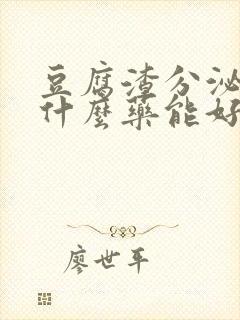 豆腐渣分泌
什麼藥能好
廖世平